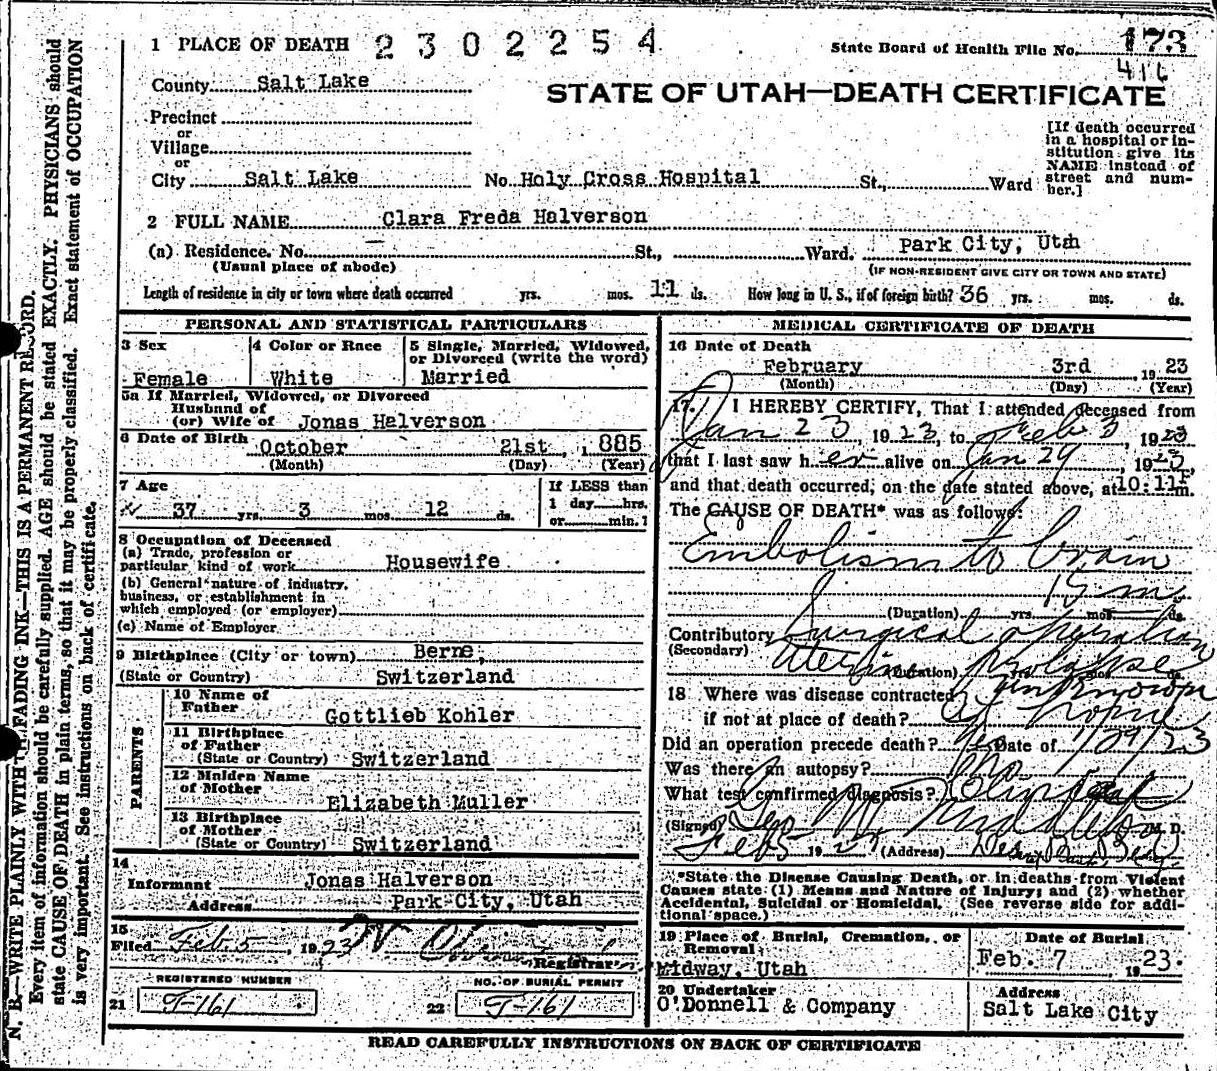 1 PLACE OF DEATH 2302254 State Board of Health File No. 173
416
County Salt Lake
STATE OF UTAH—DEATH CERTIFICATE
Precinct
or
Village
or
City Salt Lake No. Holy Cross Hospital St., Ward
[If death occurred
in a hospital or in-
stitution give its
NAME instead of
street and num-
ber.]
2 FULL NAME Clara Freda Halverson
(a) Residence. No. St., Ward. Park City, Utah
(Usual place of abode) (IF NON-RESIDENT GIVE CITY OR TOWN AND STATE)
Length of residence in city or town where death occurred yrs. mos. 11 ds. How long in U. S., if of foreign birth? 36 yrs. mos. ds.
PERSONAL AND STATISTICAL PARTICULARS
3 Sex 4 Color or Race 5 Single, Married, Widowed,
or Divorced (write the word)
Female White Married
5a If Married, Widowed, or Divorced
Husband of
(or) Wife of Jonas Halverson
6 Date of Birth October 21st, 1885
(Month) (Day) (Year)
7 Age If LESS than
1 day hrs.
37 yrs. 3 mos. 12 ds.
or min.?
8 Occupation of Deceased
(a) Trade, profession or
particular kind of work Housewife
(b) General nature of industry,
business, or establishment in
which employed (or employer)
(c) Name of Employer
9 Birthplace (City or town) Berne,
(State or Country) Switzerland
PARENTS
10 Name of
Father
Gottlieb Kohler
11 Birthplace
of Father
(State or Country) Switzerland
12 Maiden Name
of Mother
Elizabeth Muller
13 Birthplace
of Mother
(State or Country) Switzerland
14
Informant Jonas Halverson
Address Park City, Utah
15
Filed Feb. 5, 1923
Registrar
REGISTERED NUMBER NO. OF BURIAL PERMIT
21 T-161 22 T-161
MEDICAL CERTIFICATE OF DEATH
16 Date of Death
February 3rd 1923
(Month) (Day) (Year)
17. I HEREBY CERTIFY, That I attended deceased from
Jan 23, 1923, to Feb 3, 1923
that I last saw her alive on Jan 29, 1923,
and that death occurred, on the date stated above, at 10:11 m.
The CAUSE OF DEATH* was as follows:
Embolism to brain
15 m.
(Duration) yrs. mos. ds.
Contributory Surgical operation
(Secondary) Uterine prolapse
(Duration) yrs. mos. ds.
unknown
18 Where was disease contracted
if not at place of death? At home
Did an operation precede death? Yes Date of 1/29/23
Was there an autopsy? no
What test confirmed diagnosis? Clinical
(Signed) Geo. W. Middleton M. D.
Feb 5 1923 (Address) Deseret Bank Bldg
*State the Disease Causing Death, or in deaths from Violent
Causes state (1) Means and Nature of Injury; and (2) whether
Accidental, Suicidal or Homicidal. (See reverse side for addi-
tional space.)
19 Place of Burial, Cremation, or
Removal Date of Burial
Midway, Utah Feb. 7 1923.
20 Undertaker Address
O'Donnell & Company Salt Lake City
READ CAREFULLY INSTRUCTIONS ON BACK OF CERTIFICATE
N. B.—WRITE PLAINLY WITH UNFADING INK—THIS IS A PERMANENT RECORD.
Every item of information should be carefully supplied. AGE should be stated EXACTLY. PHYSICIANS should
state CAUSE OF DEATH in plain terms, so that it may be properly classified. Exact statement of OCCUPATION
is very important. See instructions on back of certificate.